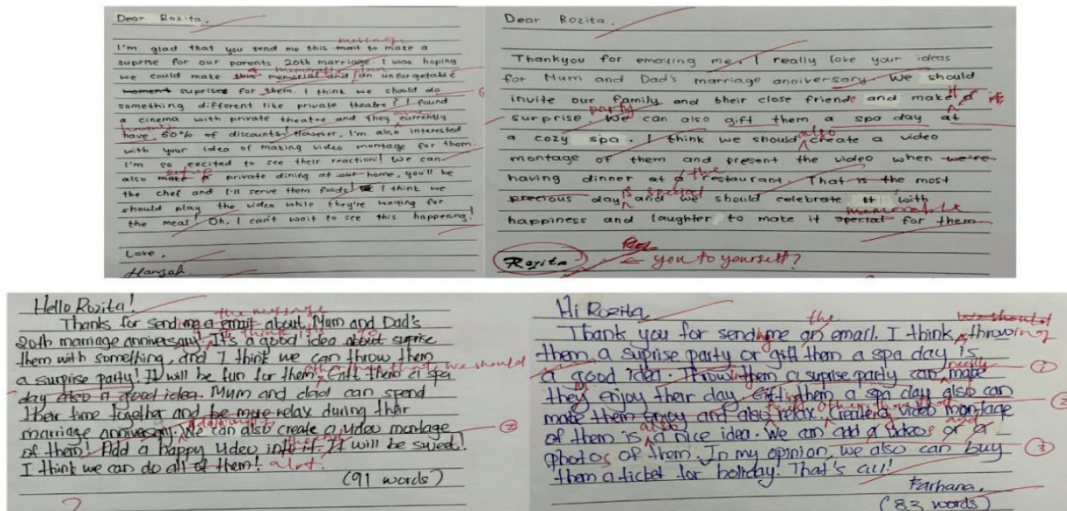 Dear Rozita,
I'm glad that you send me this mait to make a
message
suprise for our parents 20th marriage I was hoping
we could make this memorial and an unforgetable
moment suprise for them. I think we should do
something different like private theatre? I found
a cinema with private theatre and they currently
have 60% of discounts! However, I'm also interested
with your idea of making video montage for them.
I'm so excited to see their reaction!! We can
also make a private dining at our home, you'll be
the chef and I'll serve them foods! I think we
should play the video while they're waiting for
the meal! Oh, I can't wait to see this happening!
Love,
Hanysah
Dear Rozita,
Thankyou for emailing me. I really love your ideas
for Mum and Dad's marriage anniversary. We should
invite our family and their close friends and make it a
surprise. We can also gift them a spa day at
party
a cozy spa. I think we should create a video
also
montage of them and present the video when we're
having dinner at a restaurant. That is the most
the
precious day and we should celebrate it with
is special
happiness and laughter to make it special for them
memorable
Rozita
you to yourself?
Hello Rozita!
Thanks for sending a email about Mum and Dad's
the message
20th marriage anniversary! It's a good idea about suprise
them with something, and I think we can throw them
a surprise party! It will be fun for them. Gift them a spa
we should
day also a good idea. Mum and dad can spend
their time together and be more relax during their
marriage anniversary. We can also create a video montage
of them! Add a happy video into it. It will be sweet!
I think we can do all of them! alot.
(91 words)
2
Hi Rozita,
Thank you for sending me an email. I think throwing
the
we should
them a suprise party or gift them a spa day is
a good idea. Throw them a suprise party can make
they enjoy their day. Gift them a spa day also can
make them enjoy and also relax. Create a video montage
of them is a nice idea. We can add a videos or a
also
and
photos of them. In my opinion, we also can buy
them a ticket for holiday! That's all!
Farhana,
(83 words)
1
2
3